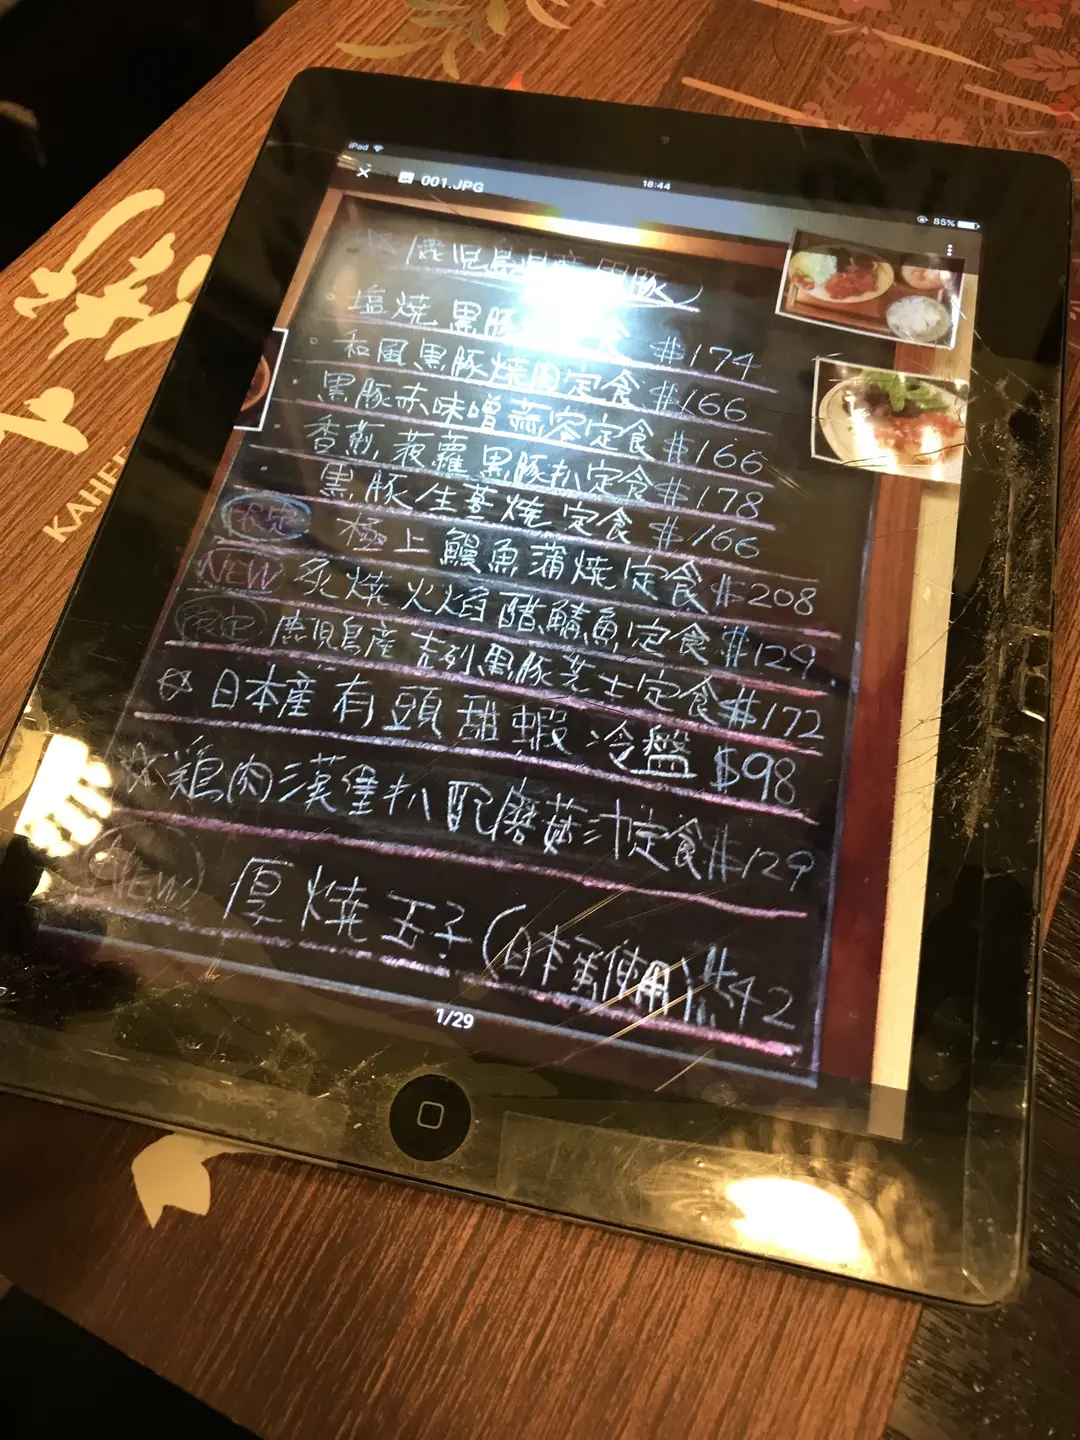 iPad 18:44 85%
001.JPG
鹿児島県産 黒豚
塩燒 黒豚 定食 $174
和風黒豚燒肉定食 $166
黒豚赤味噌 定食 $166
香煎菠蘿黒豚扒定食 $178
黒豚生薑燒定食 $166
限定 極上鰻魚蒲燒定食 $208
NEW 炙燒火焰醋鯖魚定食 $129
限定 鹿児島産吉列黒豚芝士定食 $172
日本産有頭甜蝦冷盤 $98
鶏肉漢堡扒配磨菇汁定食 $129
NEW 厚燒玉子(日本蛋使用) $42
1/29